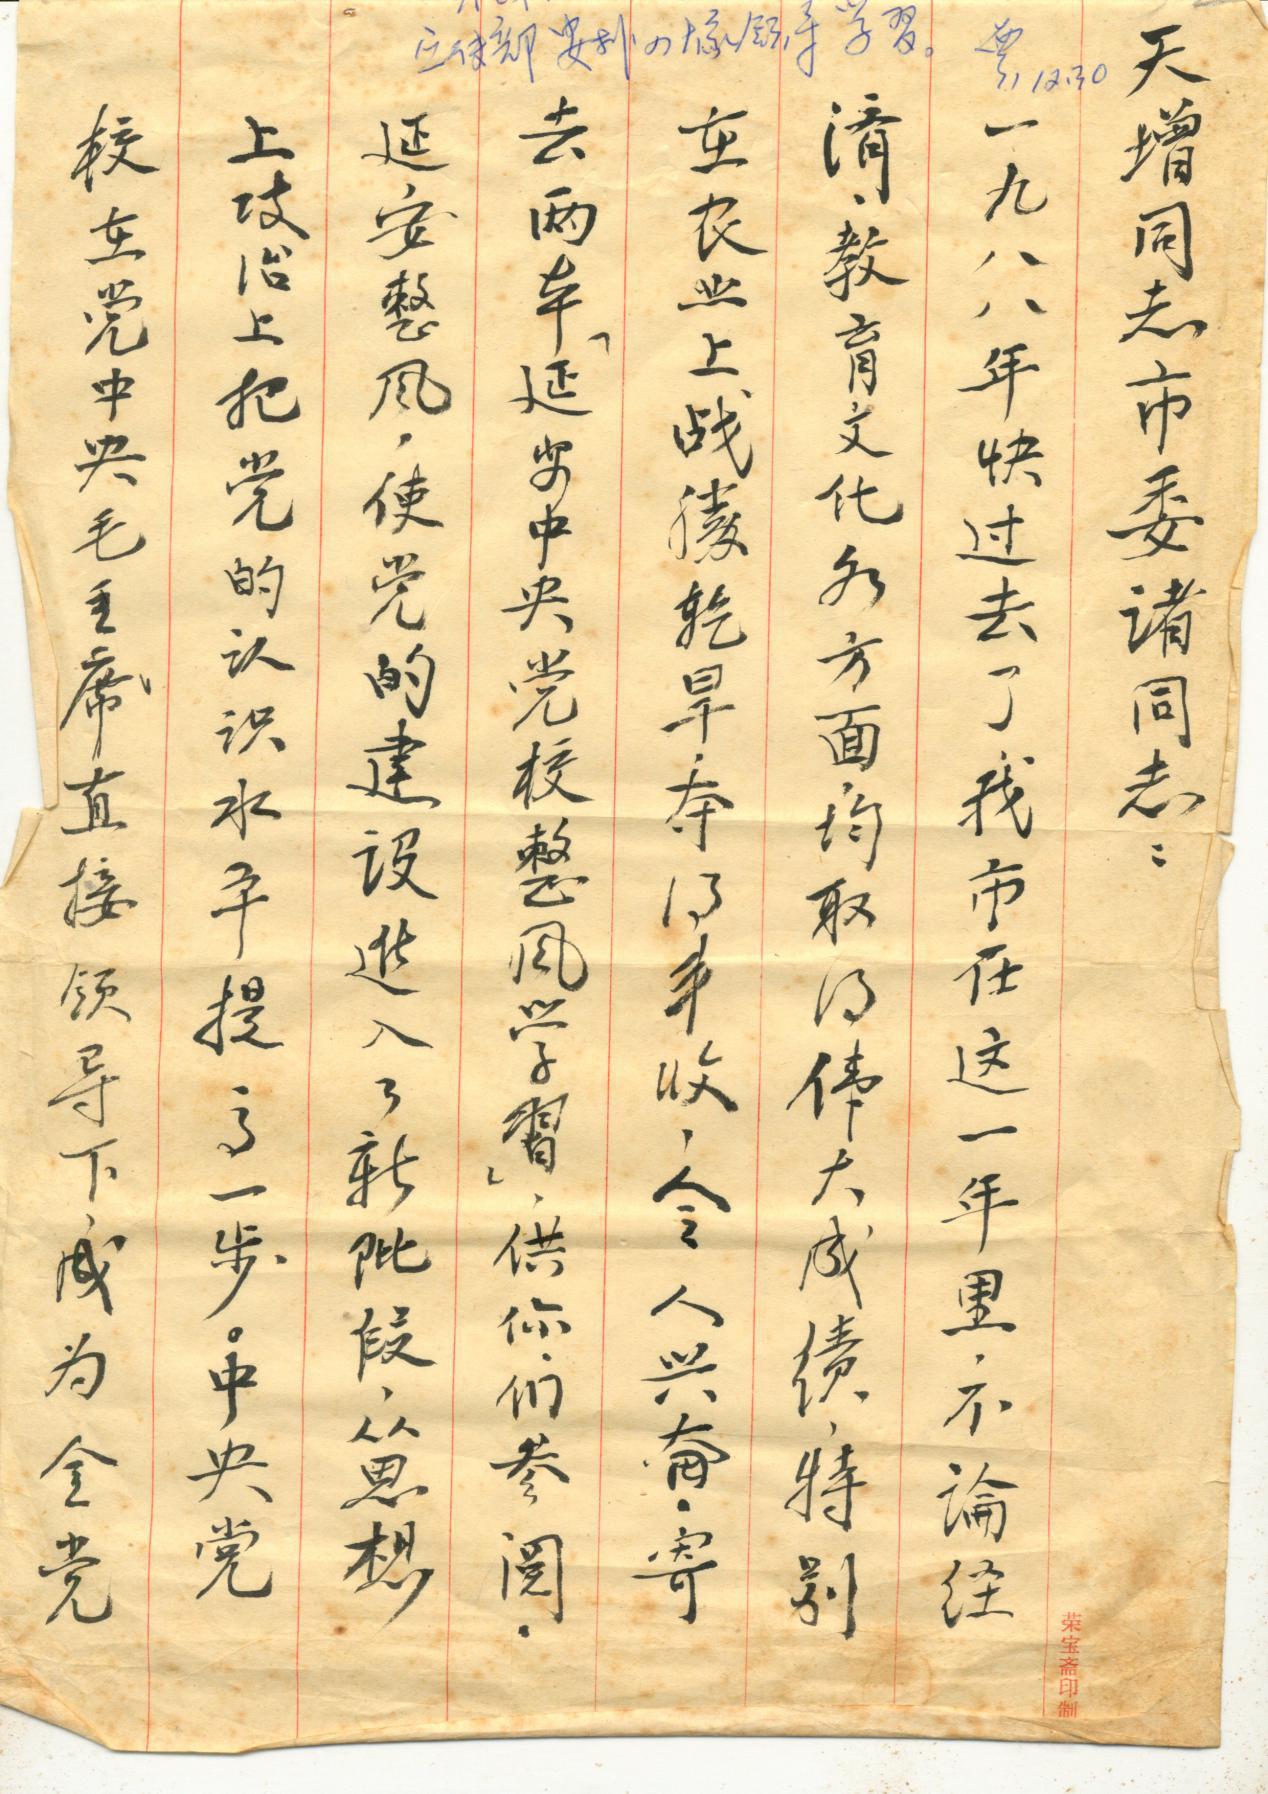 天增同志市委诸同志：
一九八八年快过去了我市在这一年里，不論经
濟、教育文化各方面，均取得伟大成绩，特别
在农业上战勝乾旱，夺得丰收，令人兴奋。寄
去两本「延安中央党校整风学習」，供你们参阅。
延安整风，使党的建设進入了新阶段，思想
上政治上把党的认识水平提高一步。中央党
校在党中央毛主席直接领导下，成为全党
学習。
12.30
荣宝斋印制